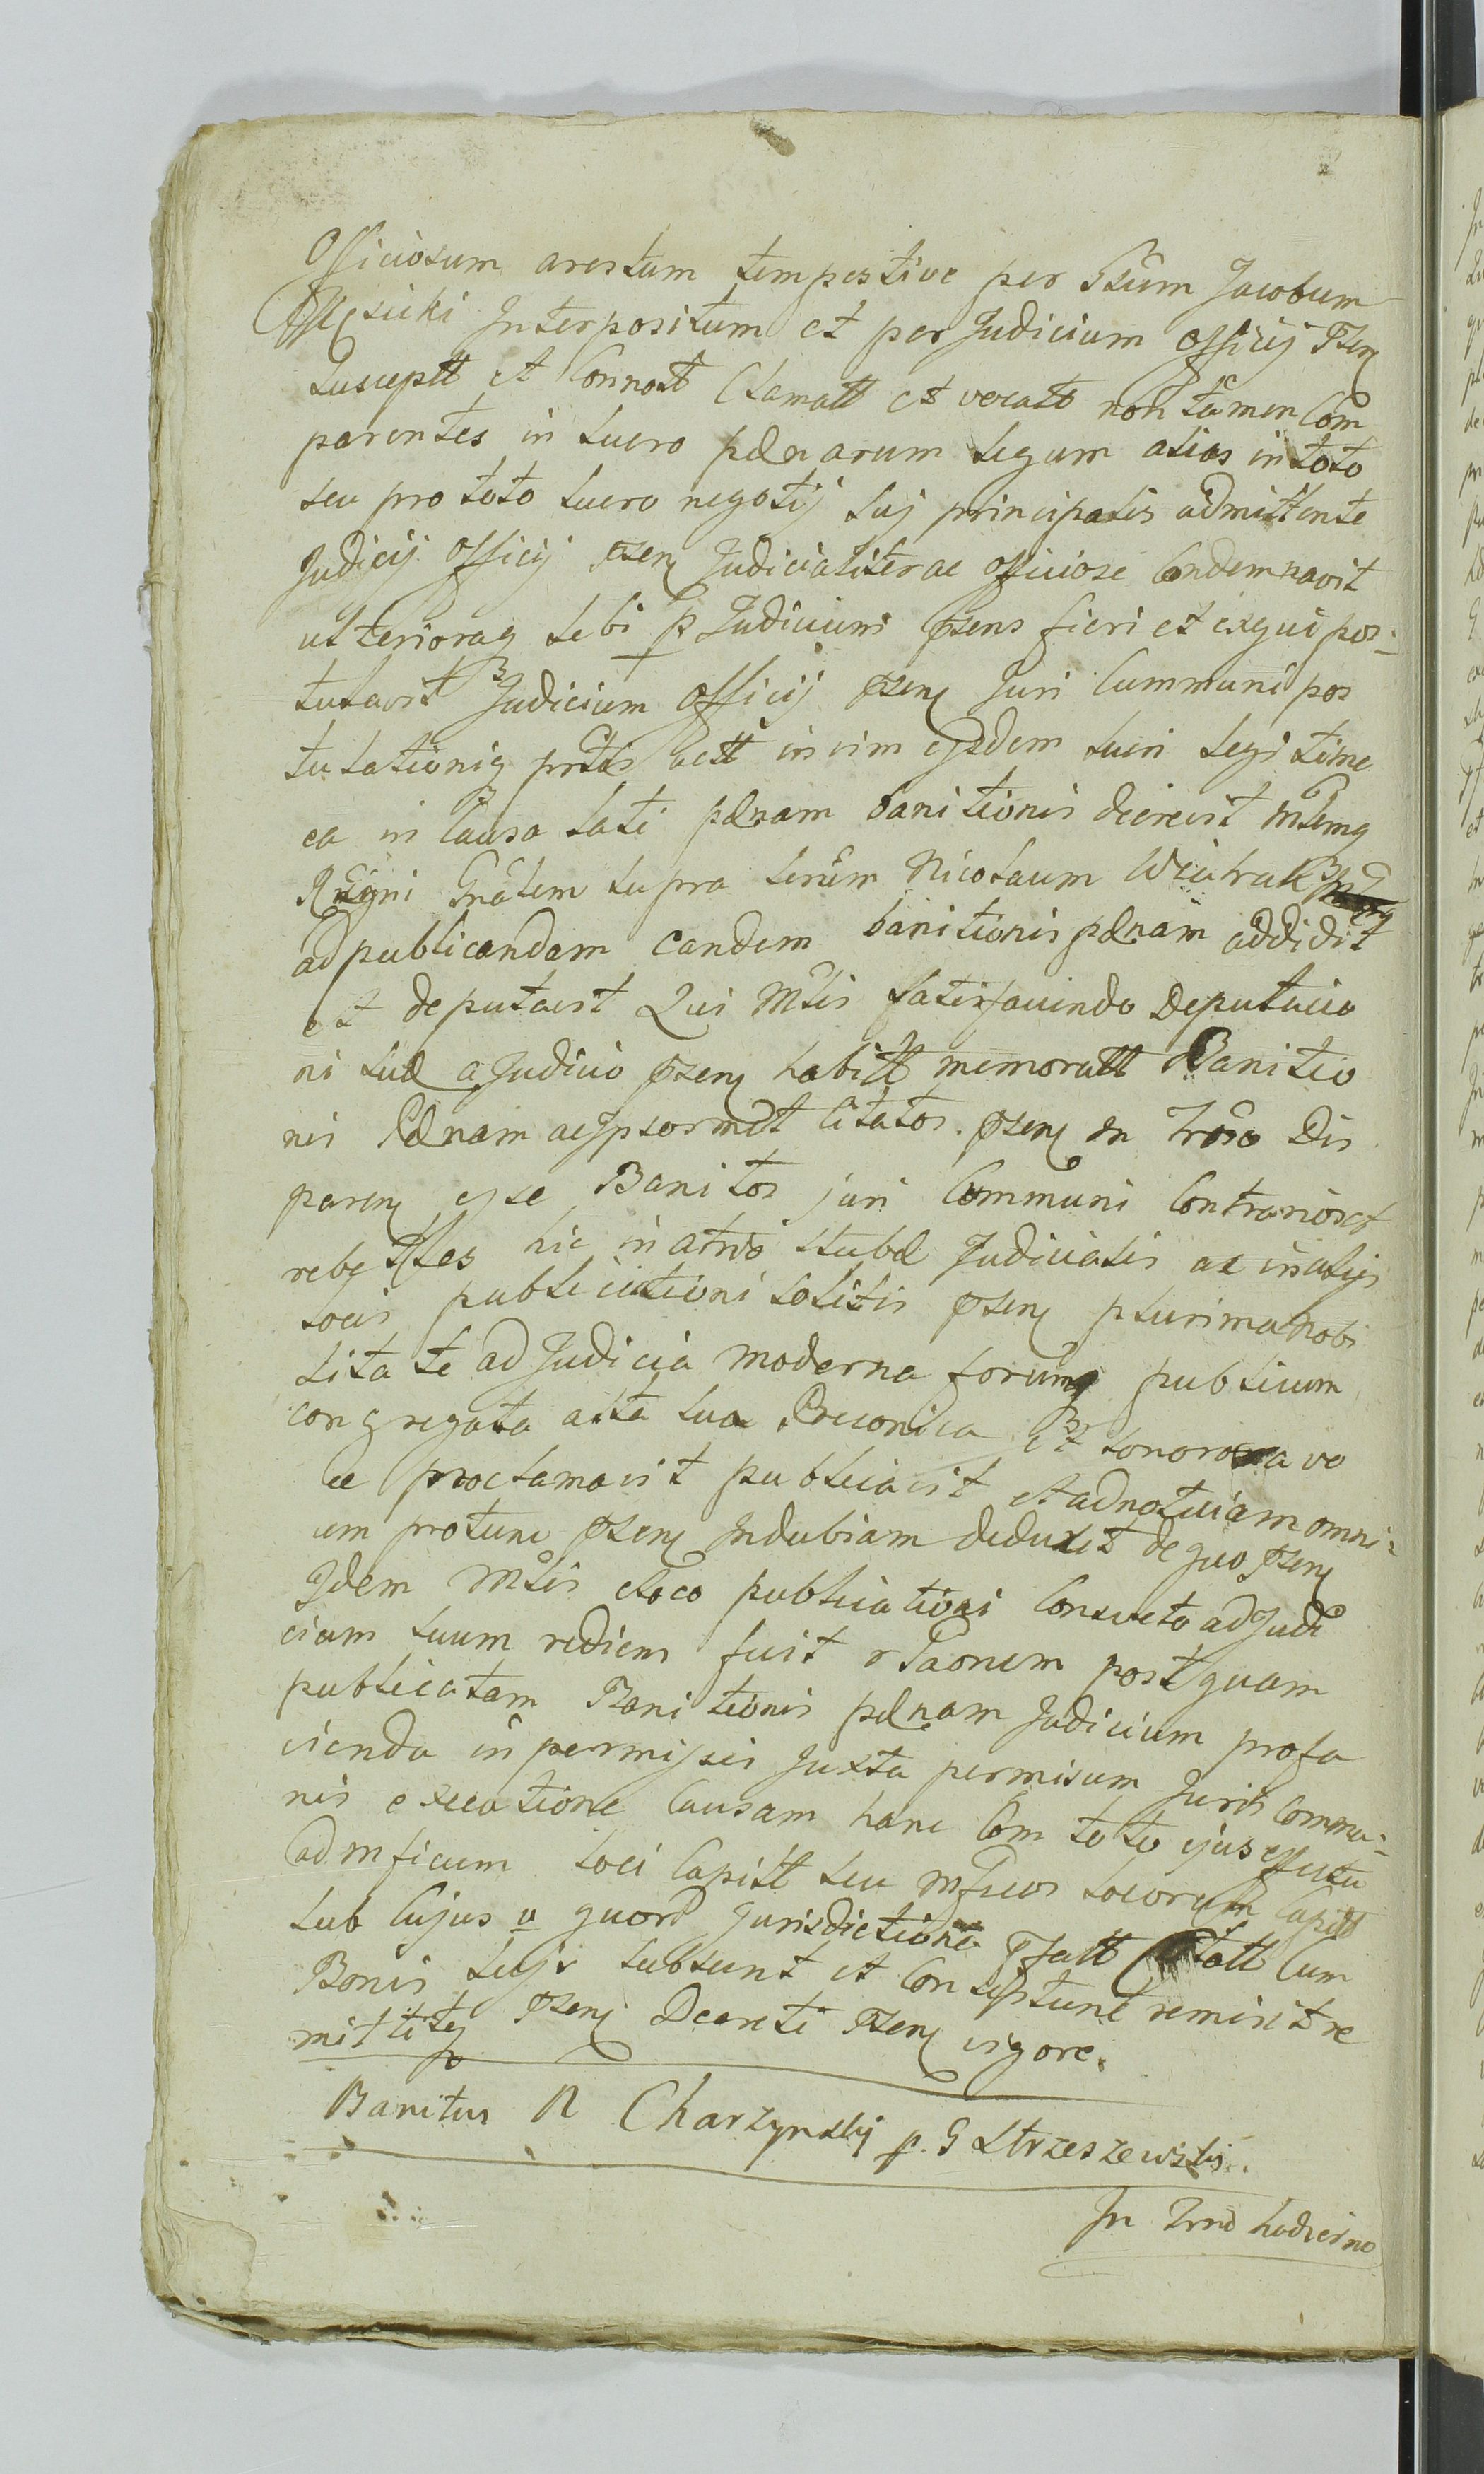 Officiosum arestum tempestive per Gsûm Jacobum
Męsicki Interpositum et per Judicium Officij Pñ
suscept et Connot Clamatt et vocatt non tamen Com
parentes in lucro pænarum legum alias in toto
seu pro toto lucro negotij sui principalis admittente
Judicij Officij Psen Judicialiter ac officiose Condemnavit
ulteriora q̨ sibi p Judicium psens fieri et exequi pos:
tulavit Judicium Officij psen Juri Cummuni pos
tulationiq̨ prtis actt in vim ejsdem lucri legi time
ea in Causa lati pænam banitionis decrevit Mtlemq̨
Regni Gnâlem supra Scrûm Nicolaum Wiatrak
ad publicandam eandem banitionis pænam addidit
et deputavit Qui Mtlis satisfaciendo Deputacio
ni suæ a Judicio psen habitt memoratt Banitio
nis Pænam ac Ipsosmet Citatos psen In Trmo Dis
paren esse Banitos juri Communi Contrarios et
rebelles hic in atrio stubæ Judicialis ac in alijs
locis publicationi solitis psen plurima nobi
litate ad Judicia moderna forumq̨ publicum
congregata alta sua Preconica et sonorosa vo
ce proclamavit publicavit et ad notitiam omni:
um protunc psen Indubiam deduxit de quo psen
Idem Mtlis eloco publicationi Consveto ad Judi
cium suum rediens fecit rlaonem post quam
publicatam Banitionis pænam Judicium profa
cienda in permissis Juxta permisum Juris Commu:
nis executione Causam hanc Com toto ejus effectu
ad mficum loci Capitt seu mficos locorum Capitt
sub Cujus v quord Jurisdictione Pfatt Citatt Cum
Bonis suis subsunt et Consistunt remisit re
mittitq̨ psen Decreti psen vigore.
Banitus N Charzynskij p. G Strzeszewskij.
In Trno hodierno